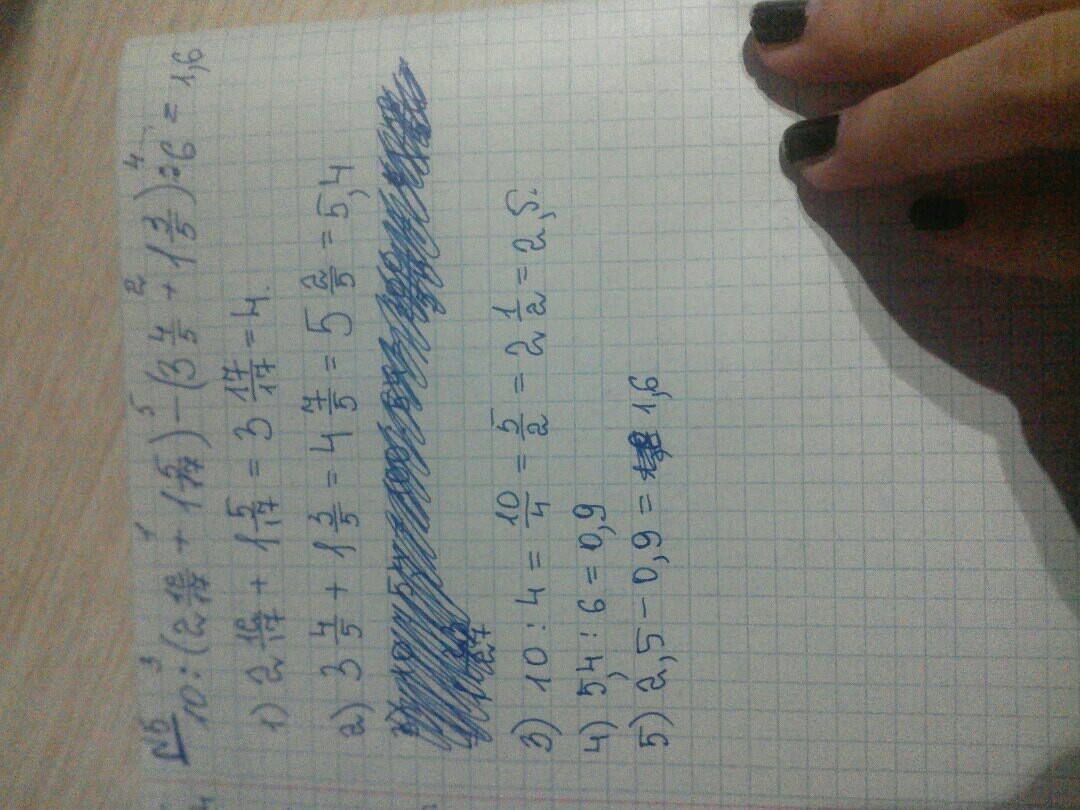 №5
10 : (2 12/17 + 1 5/17) - (3 4/5 + 1 3/5) : 6 = 1,6
1) 2 12/17 + 1 5/17 = 3 17/17 = 4.
2) 3 4/5 + 1 3/5 = 4 7/5 = 5 2/5 = 5,4
3) 10 : 4 = 10/4 = 5/2 = 2 1/2 = 2,5.
4) 5,4 : 6 = 0,9
5) 2,5 - 0,9 = 1,6